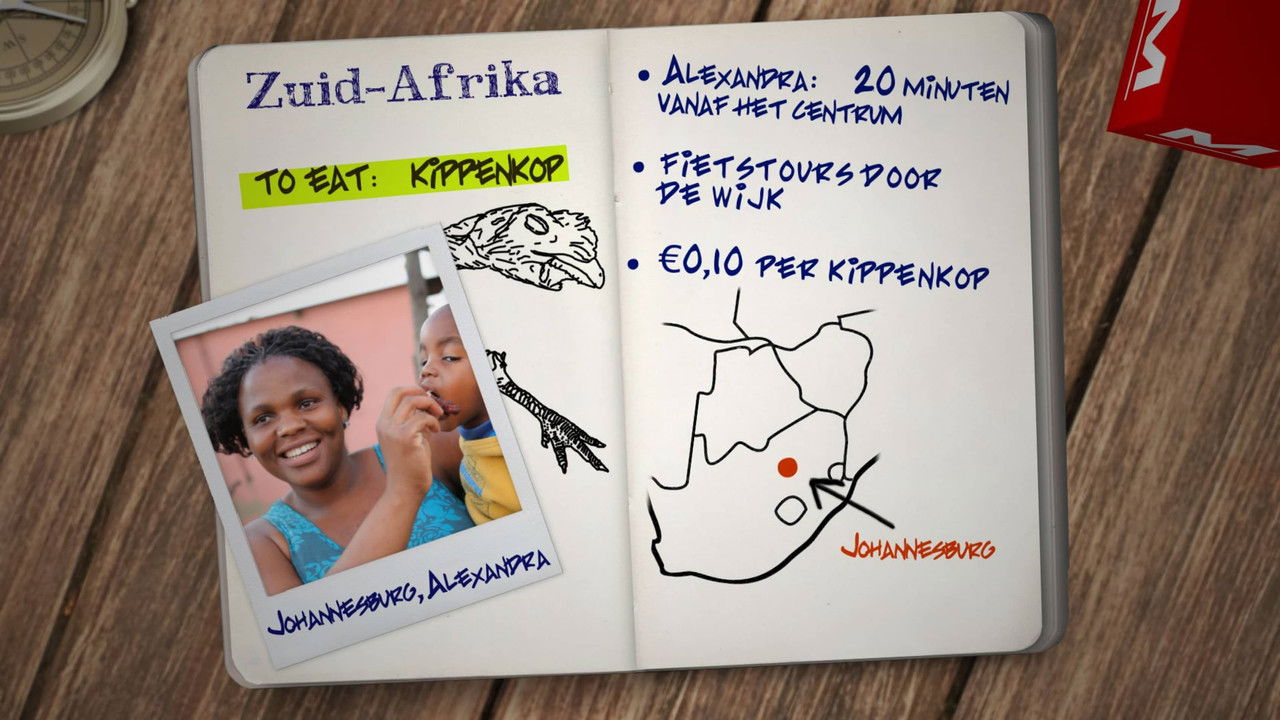 Zuid-Afrika
TO EAT: KIPPENKOP
JOHANNESBURG, ALEXANDRA
• ALEXANDRA: 20 MINUTEN
VANAF HET CENTRUM
• FIETSTOURS DOOR
DE WIJK
• €0,10 PER KIPPENKOP
JOHANNESBURG